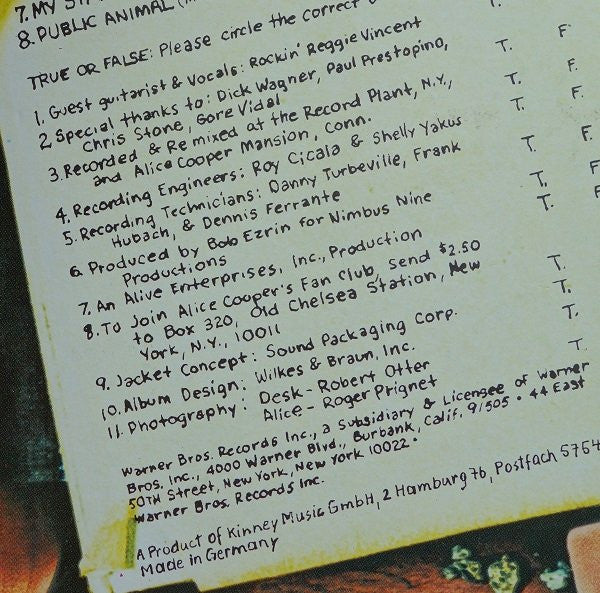 7. MY
8. PUBLIC ANIMAL
TRUE OR FALSE: Please circle the correct
1. Guest guitarist & Vocals: Rockin' Reggie Vincent T.
2. Special thanks to: Dick Wagner, Paul Prestopino, T. F.
Chris Stone, Gore Vidal
3. Recorded & Remixed at the Record Plant, N.Y., T. F.
and Alice Cooper Mansion, Conn.
4. Recording Engineers: Roy Cicala & Shelly Yakus T. F.
5. Recording Technicians: Danny Turbeville, Frank T. F.
Hubach, & Dennis Ferrante
6. Produced by Bob Ezrin for Nimbus Nine T. F
Productions
7. An Alive Enterprises, Inc., Production T. F
8. To Join Alice Cooper's Fan Club, send $2.50 T.
to Box 320, Old Chelsea Station, New
York, N.Y., 10011
9. Jacket Concept: Sound Packaging Corp. T.
10. Album Design: Wilkes & Braun, Inc. T.
11. Photography: Desk - Robert Otter T.
Alice - Roger Prignet
Warner Bros. Records Inc., a Subsidiary & Licensee of Warner
Bros. Inc., 4000 Warner Blvd., Burbank, Calif. 91505 • 44 East
50TH Street, New York, New York 10022 •
Warner Bros. Records Inc.
A Product of Kinney Music GmbH, 2 Hamburg 76, Postfach 5764
Made in Germany